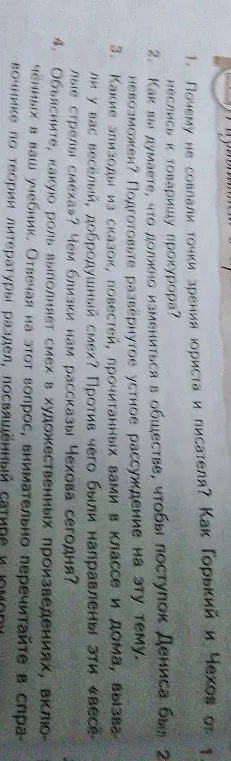 1. Почему не совпали точки зрения юриста и писателя? Как Горький и Чехов от-
неслись к товарищу прокурора?
2. Как вы думаете, что должно измениться в обществе, чтобы поступок Дениса был
невозможен? Подготовьте развёрнутое устное рассуждение на эту тему.
3. Какие эпизоды из сказок, повестей, прочитанных вами в классе и дома, вызва-
ли у вас весёлый, добродушный смех? Против чего были направлены эти «весё-
лые стрелы смеха»? Чем близки нам рассказы Чехова сегодня?
4. Объясните, какую роль выполняет смех в художественных произведениях, вклю-
чённых в ваш учебник. Отвечая на этот вопрос, внимательно перечитайте в спра-
вочнике по теории литературы раздел, посвящённый сатире и юмору
1
2